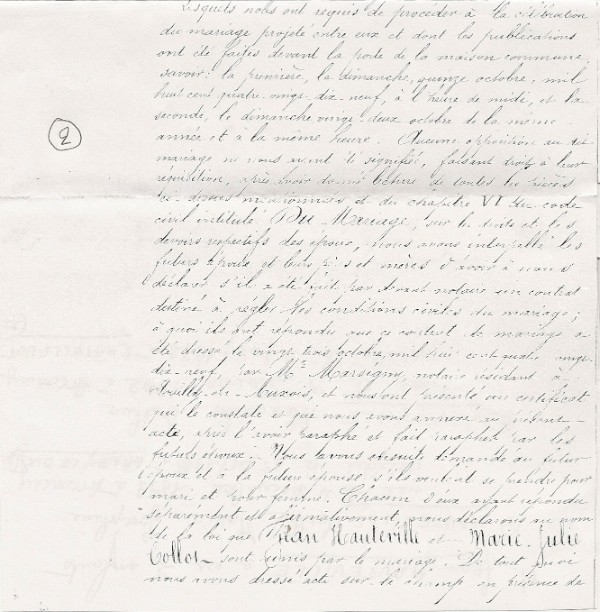 Lesquels nous ont requis de procéder à la célébration
du mariage projeté entre eux et dont les publications
ont été faites devant la porte de la maison commune,
savoir : la première, le dimanche, quinze octobre, mil
huit cent quatre-vingt-dix-neuf, à l'heure de midi, et la
seconde, le dimanche vingt-deux octobre de la même
2
année et à la même heure. Aucune opposition au dit
mariage ne nous ayant été signifiée, faisant droit à leur
réquisition, après avoir donné lecture de toutes les pièces
ci-dessus mentionnées et du chapitre VI du code
civil intitulé Du Mariage, sur les droits et les
devoirs respectifs des époux, nous avons interpellé les
futurs époux et leurs pères et mères d'avoir à nous
déclarer s'il a été fait par devant notaire un contrat
destiné à régler les conditions civiles du mariage ;
à quoi ils ont répondu que ce contrat de mariage a
été dressé, le vingt trois octobre, mil huit cent quatre vingt-
dix-neuf, par Me Marsigny, notaire résidant à
Pouilly-en-Auxois, et nous ont présenté un certificat
qui le constate et que nous avons annexé au présent
acte, après l'avoir paraphé et fait parapher par les
futurs époux. Nous avons ensuite demandé au futur
époux et à la future épouse s'ils veulent se prendre pour
mari et pour femme. Chacun d'eux ayant répondu
séparément et affirmativement, nous déclarons au nom
de la loi que Jean Hauteville et Marie-Julie
Collot sont unis par le mariage. De tout quoi
nous avons dressé acte sur le champ en présence de